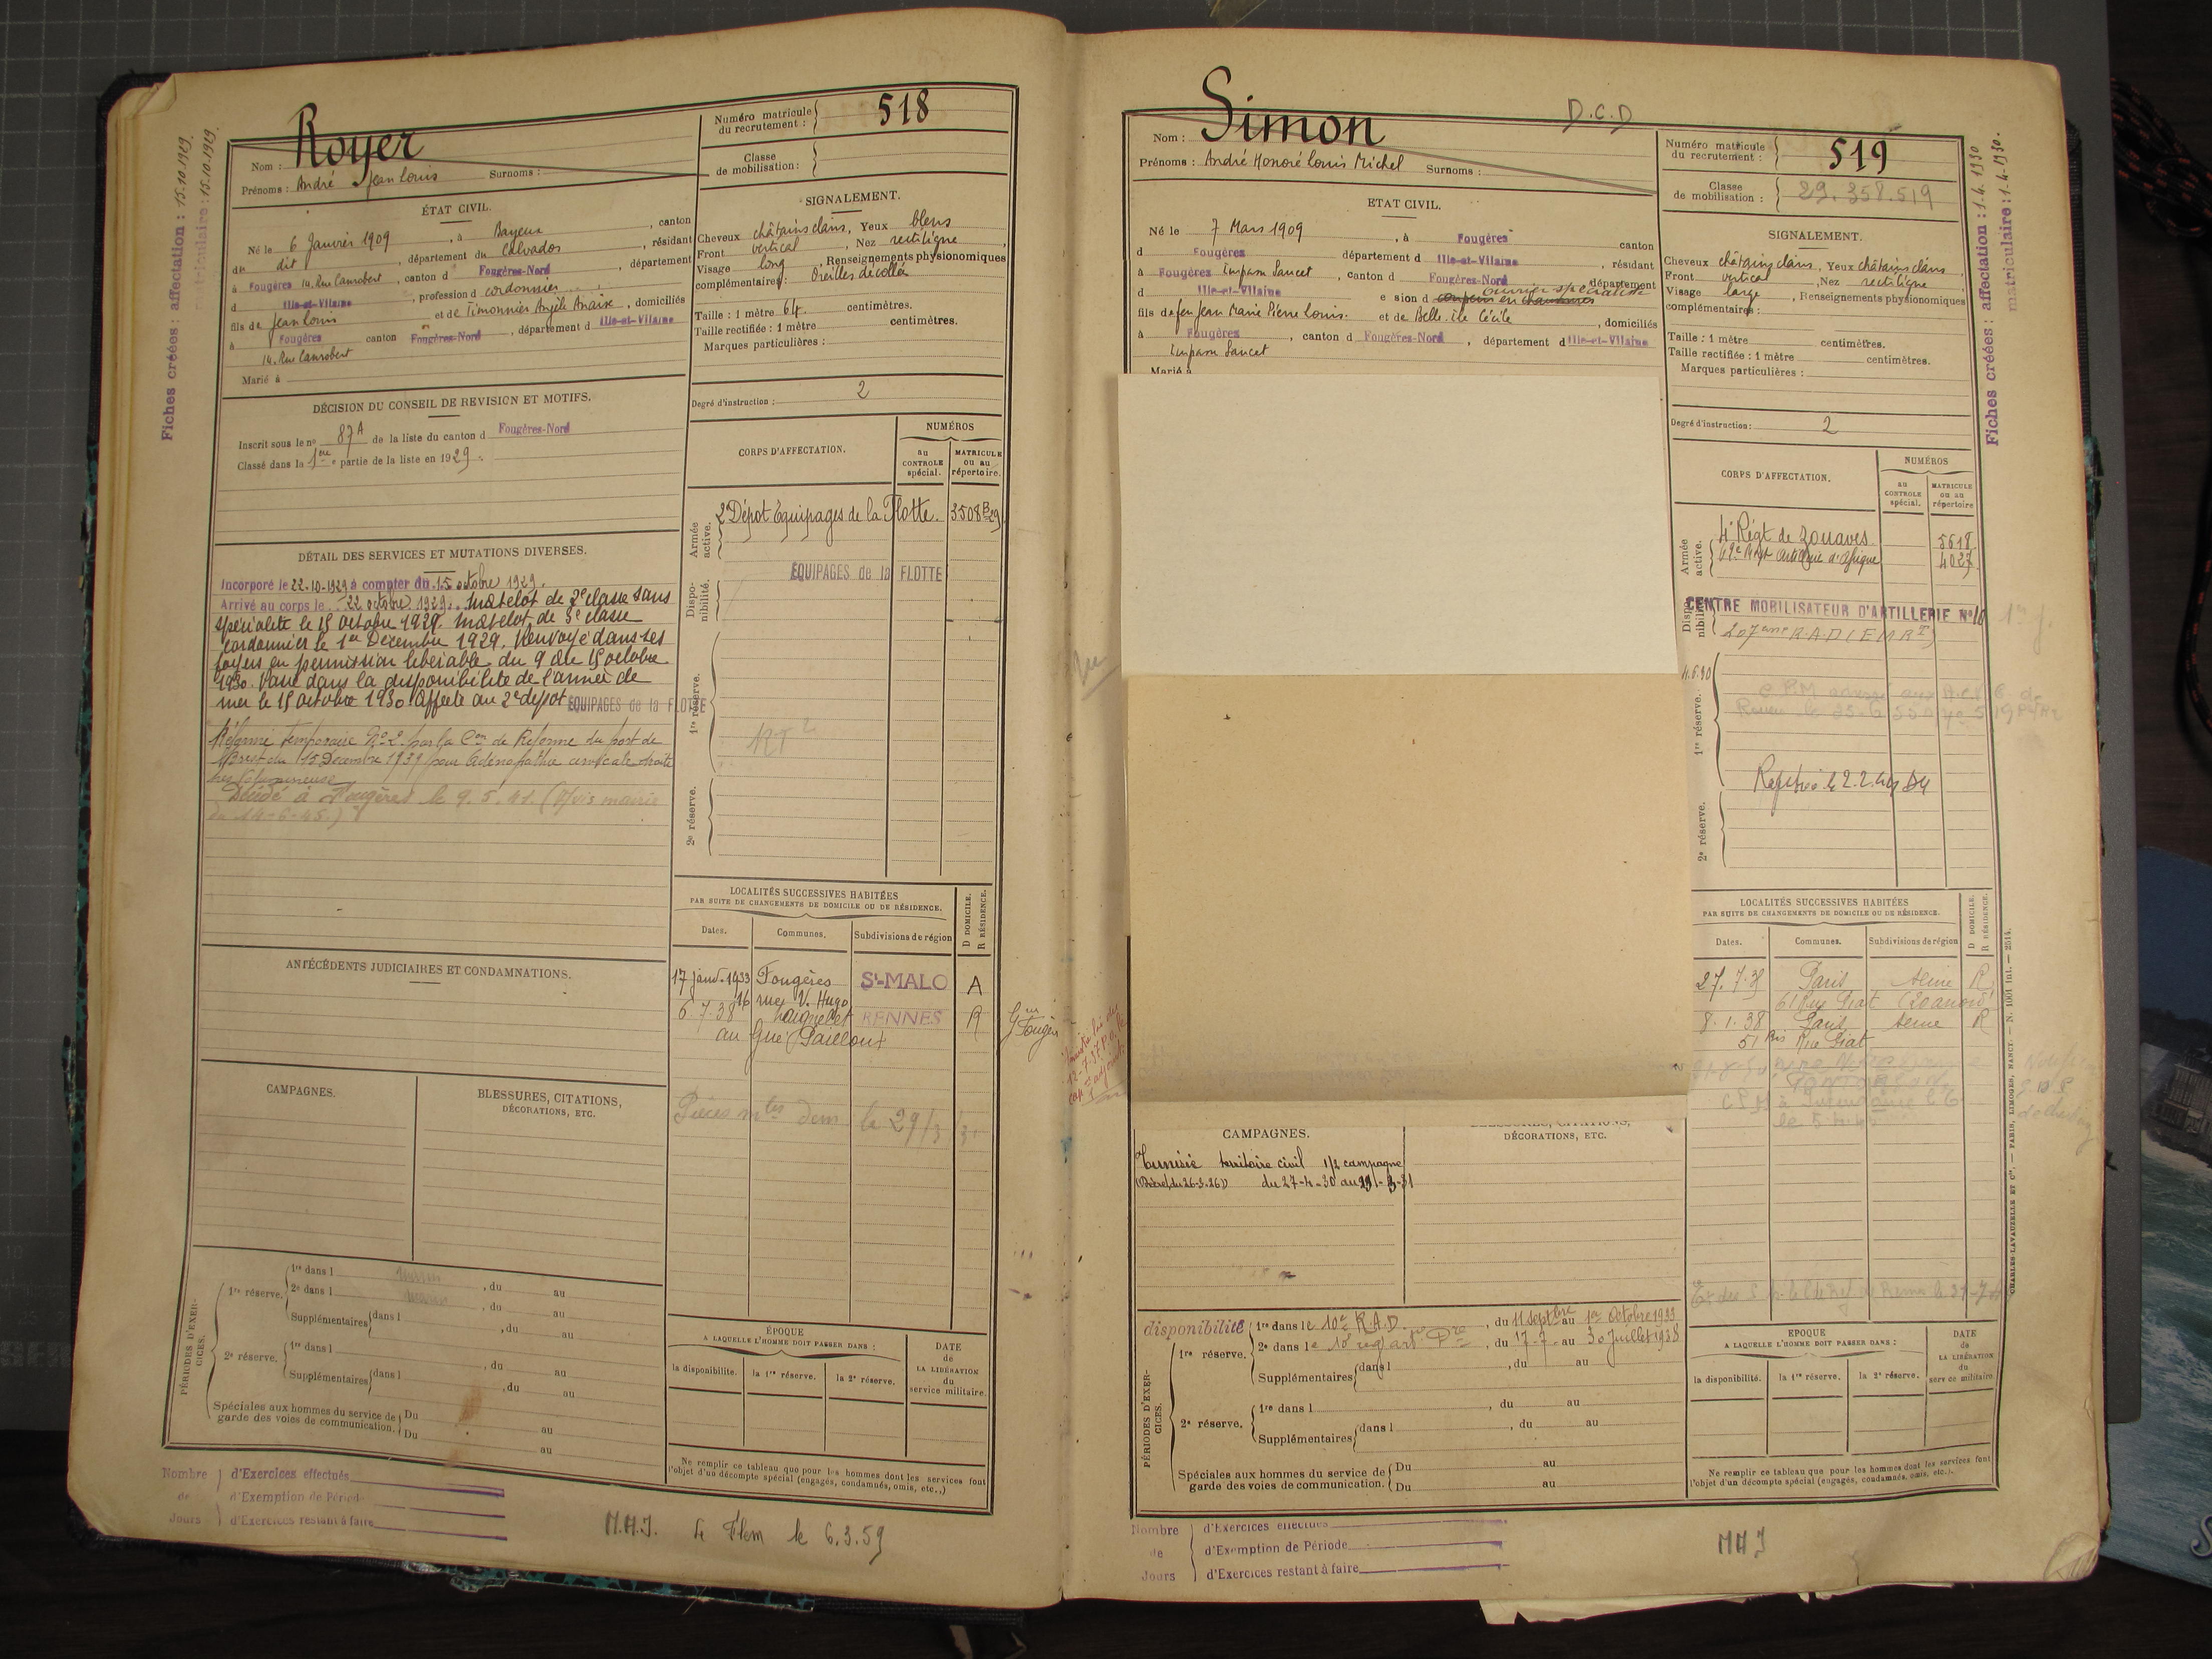 Fiches créées : affectation : 15.10.1929.
matriculaire : 15.10.1929.
Nom : Royer
Prénoms : André Jean Louis Surnoms :
Numéro matricule du recrutement : 518
Classe de mobilisation :
ÉTAT CIVIL.
Né le 6 Janvier 1909, à Bayeux, canton
du dit, département du Calvados, résidant
à Fougères 14. Rue Canrobert, canton d Fougères-Nord, département
d Ille-et-Vilaine, profession d cordonnier
fils de Jean Louis et de Timonnier Angèle Anaïse, domiciliés
à Fougères canton Fougères-Nord, département d Ille-et-Vilaine
14. Rue Canrobert
Marié à
SIGNALEMENT.
Cheveux châtains clairs, Yeux bleus
Front vertical, Nez rectiligne,
Visage long, Renseignements physionomiques
complémentaires : Oreilles décollées
Taille : 1 mètre 64 centimètres.
Taille rectifiée : 1 mètre centimètres.
Marques particulières :
Degré d'instruction : 2
DÉCISION DU CONSEIL DE REVISION ET MOTIFS.
Inscrit sous le no 87A de la liste du canton d Fougères-Nord
Classé dans la 1ère partie de la liste en 1929.
DÉTAIL DES SERVICES ET MUTATIONS DIVERSES.
Incorporé le 22-10-1929 à compter du 15 octobre 1929.
Arrivé au corps le 22 octobre 1929. Matelot de 3e classe sans
spécialité le 15 octobre 1929. Matelot de 3e classe
cordonnier le 1er Décembre 1929. Renvoyé dans ses
foyers en permission libérable du 9 au 15 octobre
1930. Passé dans la disponibilité de l'armée de
mer le 15 octobre 1930. Affecté au 2e dépôt EQUIPAGES de la FLOTTE
Réformé temporaire No 2 par la Con de Réforme du port de
Brest du 15 Décembre 1931 pour adénopathie cervicale droite
très volumineuse
Décédé à Fougères le 9.5.41. (Avis mairie
du 14-6-45.)
CORPS D'AFFECTATION.
NUMÉROS
au CONTROLE spécial.
MATRICULE ou au répertoire.
Armée active.
2 Dépôt Equipages de la Flotte. 3508 B 29
Disponibilité.
EQUIPAGES de la FLOTTE
1re réserve.
RT2
2e réserve.
ANTÉCÉDENTS JUDICIAIRES ET CONDAMNATIONS.
LOCALITÉS SUCCESSIVES HABITÉES
PAR SUITE DE CHANGEMENTS DE DOMICILE OU DE RÉSIDENCE.
D DOMICILE. R RÉSIDENCE.
Dates. Communes. Subdivisions de région
17 janv. 1933 Fougères St-MALO A
16 rue V. Hugo
6.7.38 Laignelet RENNES R
au Gué Pailloux
CAMPAGNES.
BLESSURES, CITATIONS, DÉCORATIONS, ETC.
PÉRIODES D'EXERCICES.
1re réserve. 1re dans l , du au
2e dans l , du au
Supplémentaires dans l , du au
2e réserve. 1re dans l , du au
Supplémentaires dans l , du au
Spéciales aux hommes du service de garde des voies de communication. Du au
Du au
ÉPOQUE
A LAQUELLE L'HOMME DOIT PASSER DANS :
la disponibilite. la 1re réserve. la 2e réserve.
DATE de LA LIBÉRATION du service militaire.
Ne remplir ce tableau que pour les hommes dont les services font
l'objet d'un décompte spécial (engagés, condamnés, omis, etc.,)
Nombre de Jours
d'Exercices effectués
d'Exemption de Période
d'Exercices restant à faire
M.H.J. Le Flem le 6.3.59
D.C.D
Nom : Simon
Prénoms : André Honoré Louis Michel Surnoms :
Numéro matricule du recrutement : 519
Classe de mobilisation : 29.358.519
Fiches créées : affectation : 1.4.1930
matriculaire : 1.4.1930.
ETAT CIVIL.
Né le 7 Mars 1909, à Fougères canton
d Fougères département d Ille-et-Vilaine, résidant
à Fougères Impasse Sancet, canton d Fougères-Nord département
d Ille-et-Vilaine e sion d coupeur en chaussures ouvrier spécialisé
fils de feu Jean Marie Pierre Louis. et de Belle-Ile Cécile, domiciliés
à Fougères, canton d Fougères-Nord, département d Ille-et-Vilaine
Impasse Sancet
Marié à
SIGNALEMENT.
Cheveux châtains clairs, Yeux châtains clairs
Front vertical, Nez rectiligne,
Visage large, Renseignements physionomiques
complémentaires :
Taille : 1 mètre centimètres.
Taille rectifiée : 1 mètre centimètres.
Marques particulières :
Degré d'instruction : 2
CORPS D'AFFECTATION.
NUMÉROS
au CONTROLE spécial.
MATRICULE ou au répertoire
Armée active.
4e Régt de Zouaves 5618
62e Régt Artillerie d'Afrique 4027
Disponibilité.
CENTRE MOBILISATEUR D'ARTILLERIE No 10
1re réserve.
2e réserve.
LOCALITÉS SUCCESSIVES HABITÉES
PAR SUITE DE CHANGEMENTS DE DOMICILE OU DE RÉSIDENCE.
D DOMICILE. R RÉSIDENCE.
Dates. Communes. Subdivisions de région
27.7.35 Paris Seine R
61 Rue Piat (20 arrond)
8.1.38 Paris Seine R
51 bis Rue Piat
CAMPAGNES.
DÉCORATIONS, ETC.
Tunisie territoire civil 1/2 campagne
(Décret du 26-3-26) du 27-4-30 au 29-3-31
disponibilité
PÉRIODES D'EXERCICES.
1re réserve. 1re dans le 10e R.A.D., du 11 Septbre au 1er Octobre 1933
2e dans le 10e reg art Dre, du 17-7- au 30 Juillet 1938
Supplémentaires dans l , du au
2e réserve. 1re dans l , du au
Supplémentaires dans l , du au
Spéciales aux hommes du service de garde des voies de communication. Du au
Du au
EPOQUE
A LAQUELLE L'HOMME DOIT PASSER DANS :
la disponibilité. la 1re réserve. la 2e réserve.
DATE de LA LIBÉRATION du serv ce militaire
Ne remplir ce tableau que pour les hommes dont les services font
l'objet d'un décompte spécial (engagés, condamnés, omis, etc.,).
CHARLES-LAVAUZELLE ET Cie. — PARIS, LIMOGES, NANCY. — N. 1001 Int. — 2514.
Nombre de Jours
d'Exercices effectués
d'Exemption de Période
d'Exercices restant à faire
MHJ